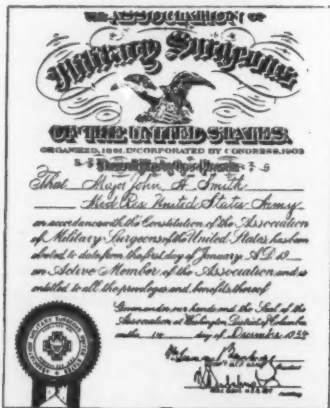 THE ASSOCIATION OF
Military Surgeons
OF THE UNITED STATES.
ORGANIZED, 1891, INCORPORATED BY CONGRESS, 1903
That Major John H Smith
Med Res United States Army
in accordance with the Constitution of the Association
of Military Surgeons of the United States, has been
elected to date from the first day of January A.D. 19
an Active Member of the Association and is
entitled to all the privileges and benefits thereof
Given under our hands and the Seal of the
Association at Washington District of Columbia
on the 1st day of December 1954